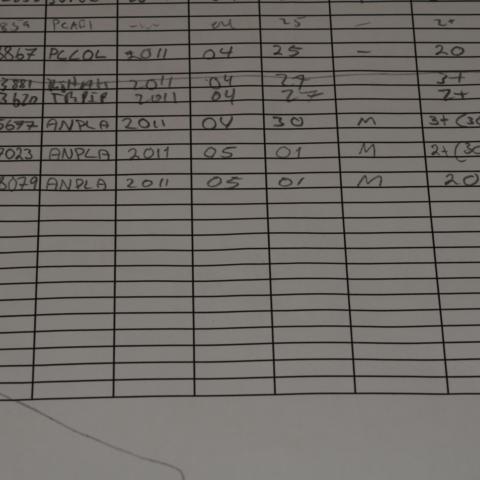 859 PCAFI 04 25 - 2+
3867 PCCOL 2011 04 25 - 20
3881 2011 04 27 3+
3620 TRPIP 2011 04 27 2+
5677 ANPLA 2011 04 30 M 3+ (30
7023 ANPLA 2011 05 01 M 2+ (30
8079 ANPLA 2011 05 01 M 20